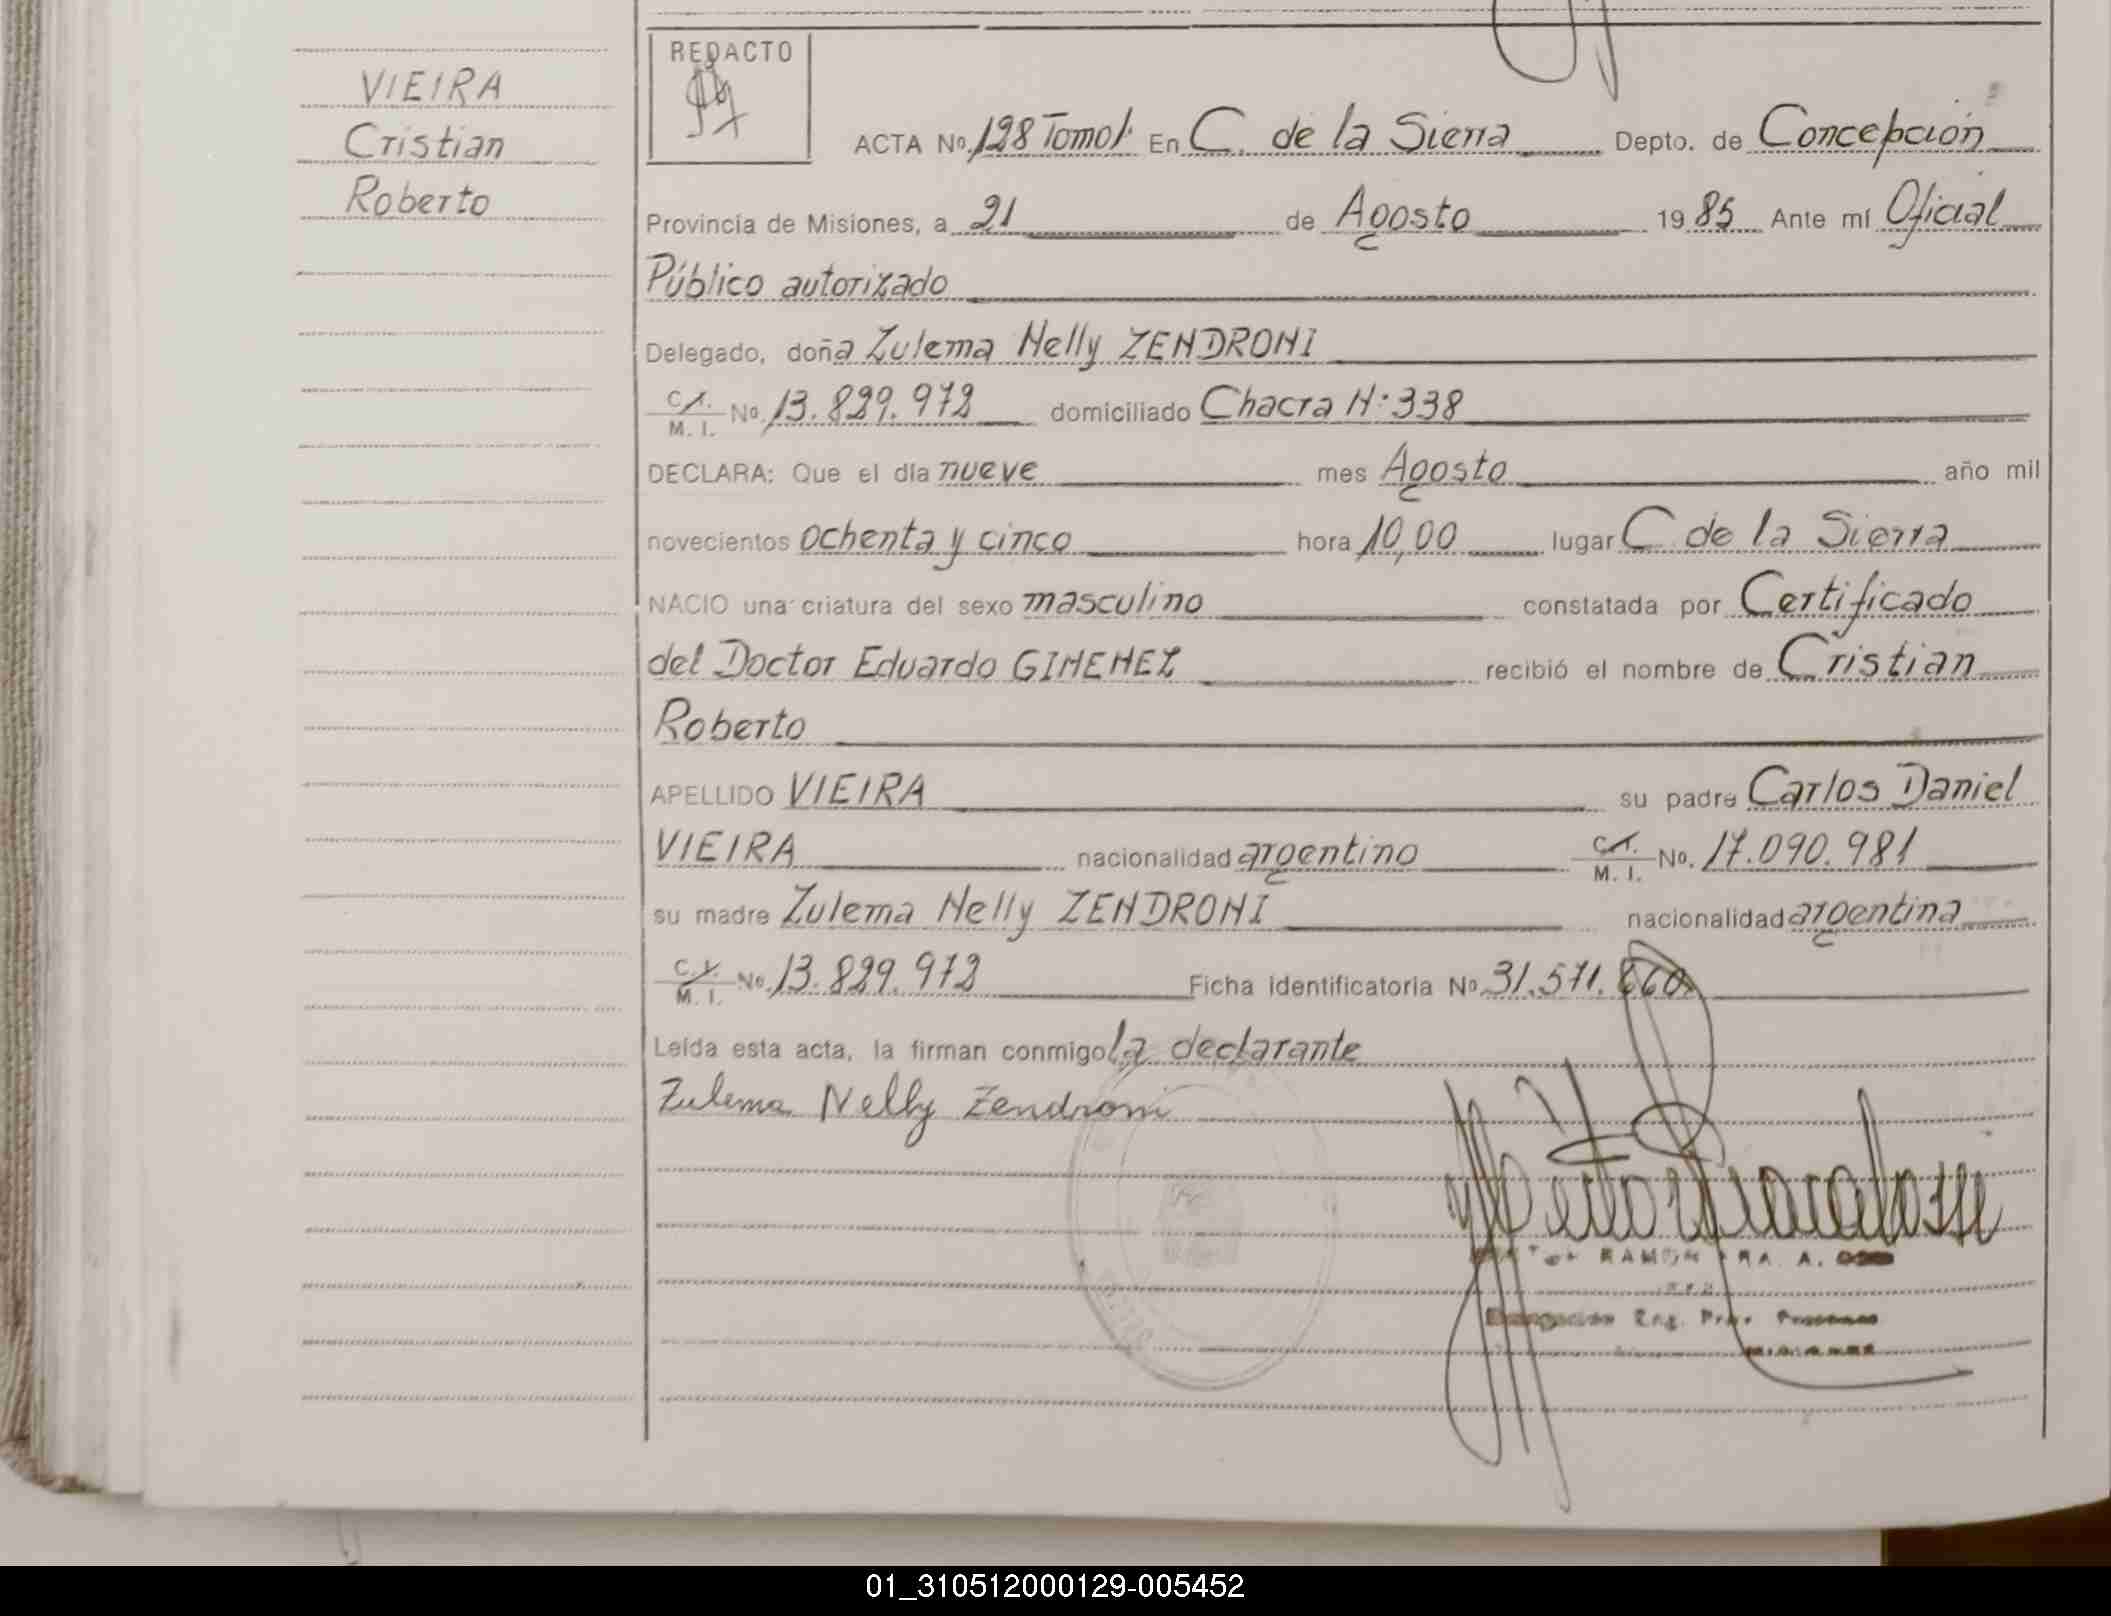 VIEIRA
Cristian
Roberto
REDACTO
ACTA Nº 128 Tomo 1º En C. de la Sierra Depto. de Concepción
Provincia de Misiones, a 21 de Agosto 1985 Ante mí Oficial
Público autorizado
Delegado, doña Zulema Nelly ZENDRONI
C.I. M. I. Nº 13.829.972 domiciliado Chacra N: 338
DECLARA: Que el día nueve mes Agosto año mil
novecientos ochenta y cinco hora 10,00 lugar C de la Sierra
NACIO una criatura del sexo masculino constatada por Certificado
del Doctor Eduardo GIMENEZ recibió el nombre de Cristian
Roberto
APELLIDO VIEIRA su padre Carlos Daniel
VIEIRA nacionalidad argentino C.I. M. I. Nº 17.090.981
su madre Zulema Nelly ZENDRONI nacionalidad argentina
C.I. M. I. Nº 13.829.972 Ficha identificatoria Nº 31.571.660
Leída esta acta, la firman conmigo la declarante
Zulema Nelly Zendroni
RAMON
Reg.
01_310512000129-005452